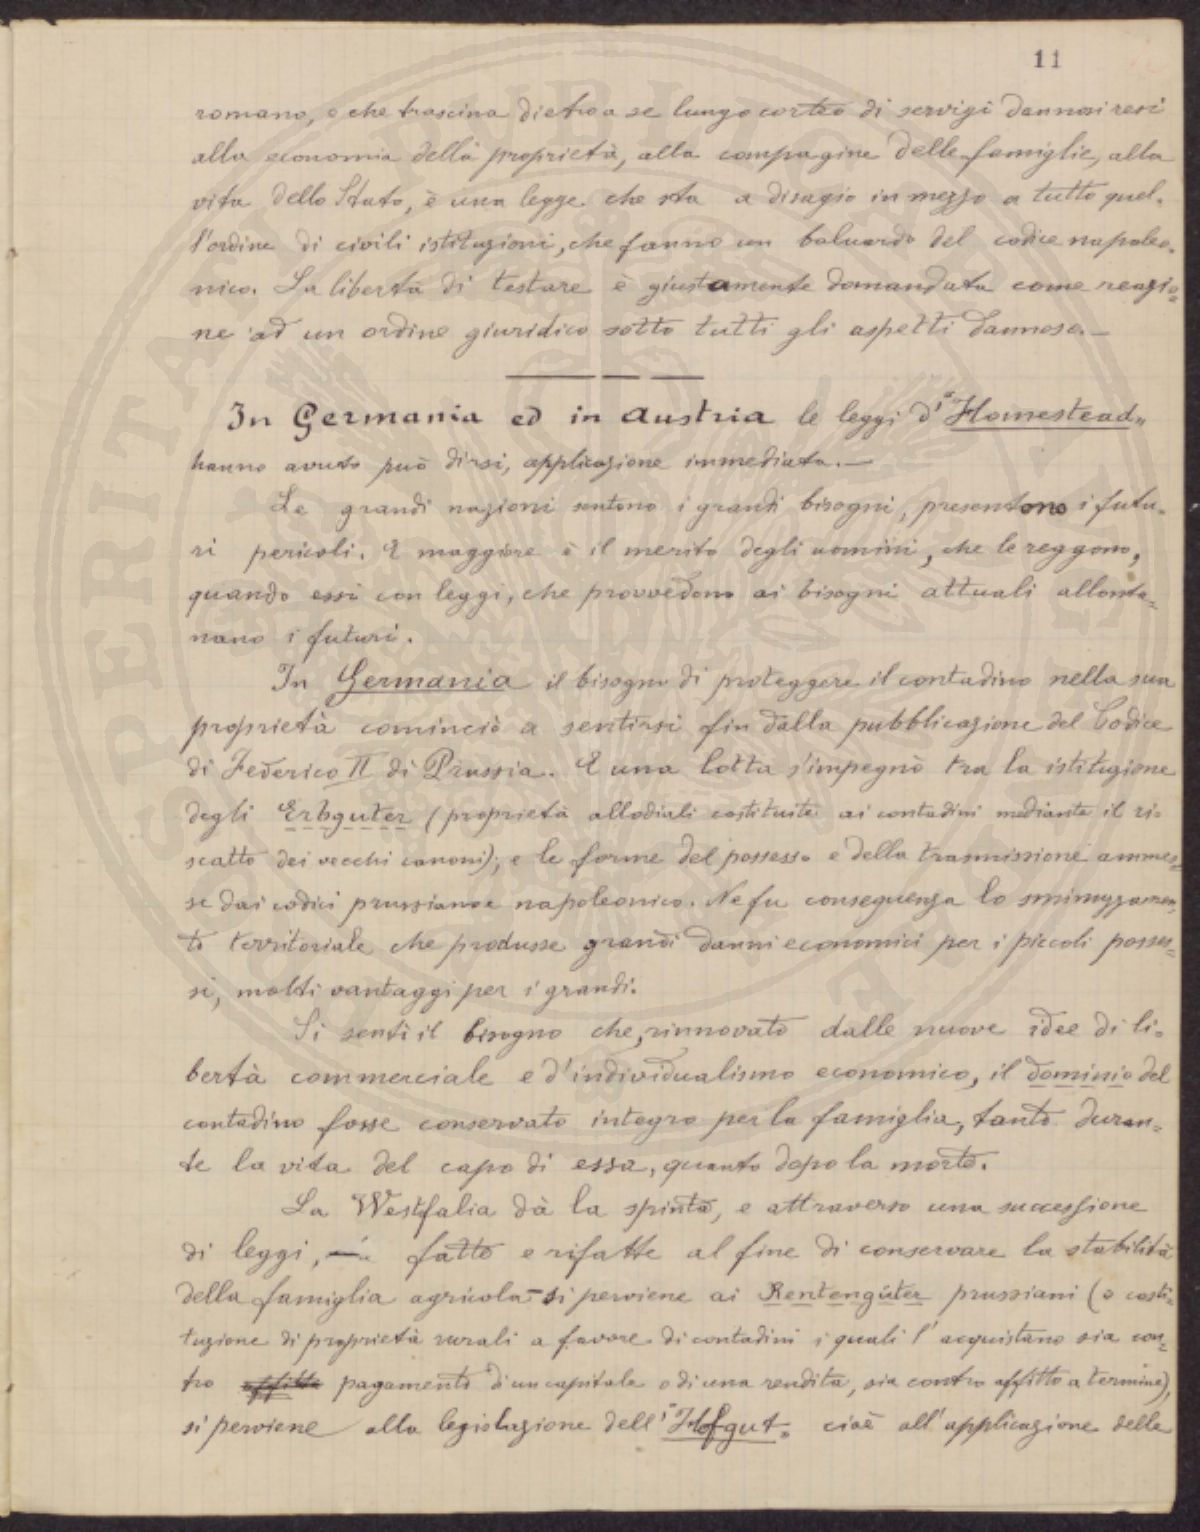 11
romano, e che trascina dietro a se lungo corteo di servigi dannosi resi
alla economia della proprietà, alla compagine delle famiglie, alla
vita dello Stato, è una legge che sta a disagio in mezzo a tutto quel-
l'ordine di civili istituzioni, che fanno un baluardo del codice napoleo-
nico. La libertà di testare è giustamente domandata come reazio=
ne ad un ordine giuridico sotto tutti gli aspetti dannoso.—
In Germania ed in Austria le leggi d'"Homestead"
hanno avuto può dirsi, applicazione immediata.—
Le grandi nazioni sentono i grandi bisogni, presentono i futu-
ri pericoli. E maggiore è il merito degli uomini, che le reggono,
quando essi con leggi, che provvedono ai bisogni attuali allonta=
nano i futuri.
In Germania il bisogno di proteggere il contadino nella sua
proprietà cominciò a sentirsi fin dalla pubblicazione del Codice
di Federico II di Prussia. E una lotta s'impegnò tra la istituzione
degli Erbguter (proprietà allodiali costituite ai contadini mediante il ri-
scatto dei vecchi canoni); e le forme del possesso e della trasmissione ammes=
se dai codici prussiano e napoleonico. Ne fu conseguenza lo sminuzzamen=
to territoriale che produsse grandi danni economici per i piccoli posses=
si, molti vantaggi per i grandi.
Si sentì il bisogno che, rinnovato dalle nuove idee di li-
bertà commerciale e d'individualismo economico, il dominio del
contadino fosse conservato integro per la famiglia, tanto duran-
te la vita del capo di essa, quanto dopo la morte.
La Westfalia dà la spinta, e attraverso una successione
di leggi, fatte e rifatte al fine di conservare la stabilità
della famiglia agricola - si perviene ai Rentengüter prussiani (o costi-
tuzione di proprietà rurali a favore di contadini i quali l'acquistano sia con=
tro affitto pagamento d'un capitale o di una rendita, sia contro affitto a termine),
si perviene alla legislazione dell'"Hofgut" cioè all'applicazione delle